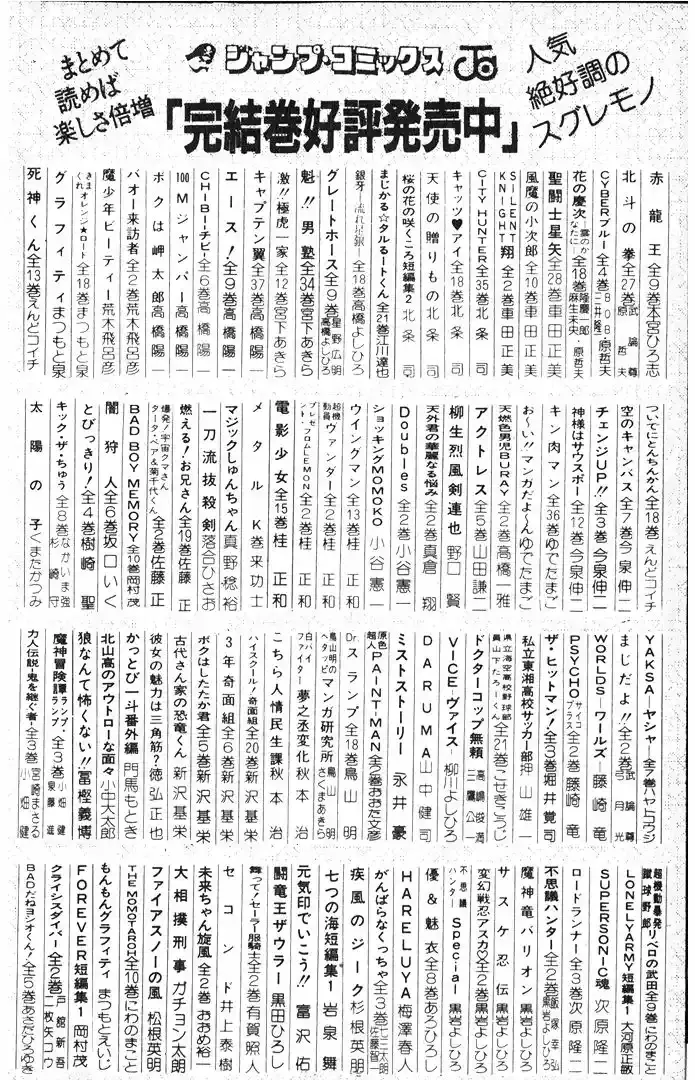 まとめて
読めば
楽しさ倍増
ジャンプ・コミックス
人気
絶好調の
スグレモノ
「完結巻好評発売中」
赤龍王 全9巻 本宮ひろ志
北斗の拳 全27巻 武論尊・原哲夫
CYBERブルー 全4巻 BOB・三井隆一・原哲夫
花の慶次―雲のかなたに― 全18巻 隆慶一郎・麻生未央・原哲夫
聖闘士星矢 全28巻 車田正美
風魔の小次郎 全10巻 車田正美
SILENT KNIGHT翔 全2巻 車田正美
CITY HUNTER 全35巻 北条司
キャッツ♥アイ 全18巻 北条司
天使の贈りもの 北条司
桜の花の咲くころ 短編集2 北条司
まじかる☆タルるートくん 全21巻 江川達也
銀牙―流れ星 銀― 全18巻 高橋よしひろ
グレートホース 全9巻 星野広明・高橋よしひろ
魁!!男塾 全34巻 宮下あきら
激!!極虎一家 全12巻 宮下あきら
キャプテン翼 全37巻 高橋陽一
エース! 全9巻 高橋陽一
CHIBI―チビ― 全6巻 高橋陽一
100Mジャンパー 高橋陽一
ボクは岬太郎 高橋陽一
バオー来訪者 全2巻 荒木飛呂彦
魔少年ビーティー 荒木飛呂彦
きまぐれオレンジ★ロード 全18巻 まつもと泉
グラフィティ まつもと泉
死神くん 全13巻 えんどコイチ
ついでにとんちんかん 全18巻 えんどコイチ
空のキャンバス 全7巻 今泉伸二
チェンジUP!! 全3巻 今泉伸二
神様はサウスポー 全12巻 今泉伸二
キン肉マン 全36巻 ゆでたまご
お〜い!!マンガだよ〜くん ゆでたまご
天燃色男児BURAY 全2巻 高橋一雅
アクトレス 全5巻 山田謙二
柳生烈風剣連也 野口賢
天外君の華麗なる悩み 全2巻 真倉翔
Doubles 全2巻 小谷憲一
ショッキングMOMOKO 小谷憲一
ウイングマン 全13巻 桂正和
超機動員ヴァンダー 全2巻 桂正和
プレゼント・フロムLEMON 全2巻 桂正和
電影少女 全15巻 桂正和
メタルK 巻来功士
マジックしゅんちゃん 真野稔裕
一刀流抜殺剣 落合ひさお
燃える!お兄さん 全19巻 佐藤正
爆発!宇宙クマさん ターター・ベア&菊千代くん 全2巻 佐藤正
BAD BOY MEMORY 全10巻 岡村茂
闇狩人 全6巻 坂口いく
とびっきり! 全4巻 樹崎聖
キック・ザ・ちゅう 全8巻 なかいま強・杉崎守
太陽の子 くまたかつみ
YAKSA―ヤシャ― 全7巻 ハヤトコウジ
まじだよ!! 全2巻 弓月光
WORLDS―ワールズ― 藤崎竜
PSYCHO+ 全2巻 藤崎竜
ザ・ヒットマン! 全3巻 堀井覚司
私立東湘高校サッカー部 押山雄一
県立海空高校野球部員山下たろーくん 全21巻 こせきこうじ
ドクターコップ無頼 高嶋俊満・三鷹公一
VICE―ヴァイス― 柳川よしひろ
DARUMA 山中健司
ミストストーリー 永井豪
原色超人PAINT・MAN 全2巻 おおた文彦
Dr.スランプ 全18巻 鳥山明
鳥山明のヘタッピマンガ研究所 鳥山明・さくまあきら
白バイファイター夢之丞変化 秋本治
こちら人情民生課 秋本治
ハイスクール!奇面組 全20巻 新沢基栄
3年奇面組 全6巻 新沢基栄
ボクはしたたか君 全5巻 新沢基栄
古代さん家の恐竜くん 新沢基栄
彼女の魅力は三角筋? 徳弘正也
かっとび一斗番外編 門馬もとき
北山高のアウトローな面々 小中大太郎
狼なんて怖くない!! 冨樫義博
魔神冒険譚ランプ・ランプ 全3巻 小畑健・泉藤進
力人伝説―鬼を継ぐ者― 全3巻 宮崎まさる・小畑健
超機動暴発蹴球野郎リベロの武田 全9巻 にわのまこと
LONELY ARMY 短編集1 大河原正敏
SUPERSONIC魂 次原隆二
ロードランナー 全3巻 次原隆二
不思議ハンター 全2巻 飯塚幸弘・黒岩よしひろ
魔神竜バリオン 黒岩よしひろ
サスケ忍伝 黒岩よしひろ
変幻戦忍アスカ♡ 全2巻 黒岩よしひろ
不思議ハンターSpecial 黒岩よしひろ
優&魅衣 全8巻 あろひろし
HARELUYA 梅澤春人
がんばらなくっちゃ 全3巻 七三太朗・佐藤智一
疾風のジーク 杉根英明
七つの海 短編集1 岩泉舞
元気印でいこう!! 富沢佑
闘竜王ザウラー 黒田ひろし
舞って!セーラー服騎士 全2巻 有賀照人
セコンド 井上泰樹
未来ちゃん旋風 全2巻 おおめ裕一
大相撲刑事 ガチョン太朗
ファイアスノーの風 松根英明
THE MOMOTAROH 全10巻 にわのまこと
もんもんグラフィティ まつもとえいじ
FOREVER 短編集1 岡村茂
クライシスダイバー 全2巻 戸舘新吾・二枚矢コウ
BADだねヨシオくん! 全5巻 あさだひろゆき